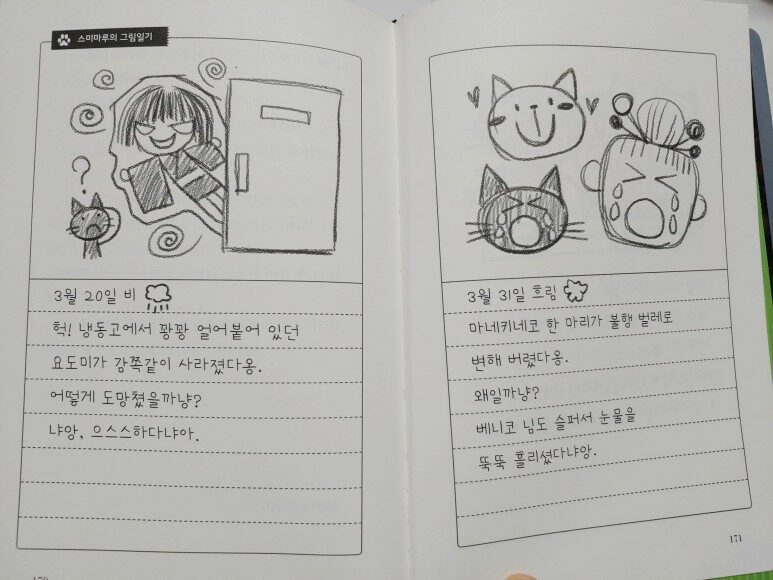 스미마루의 그림일기
?
3월 20일 비
헉! 냉동고에서 꽝꽝 얼어붙어 있던
요도미가 감쪽같이 사라졌다옹.
어떻게 도망쳤을까냥?
냐앙, 으스스하다냐아.
170
3월 31일 흐림
마네키네코 한 마리가 불행 벌레로
변해 버렸다옹.
왜일까냥?
베니코 님도 슬퍼서 눈물을
뚝뚝 흘리셨다냐앙.
171